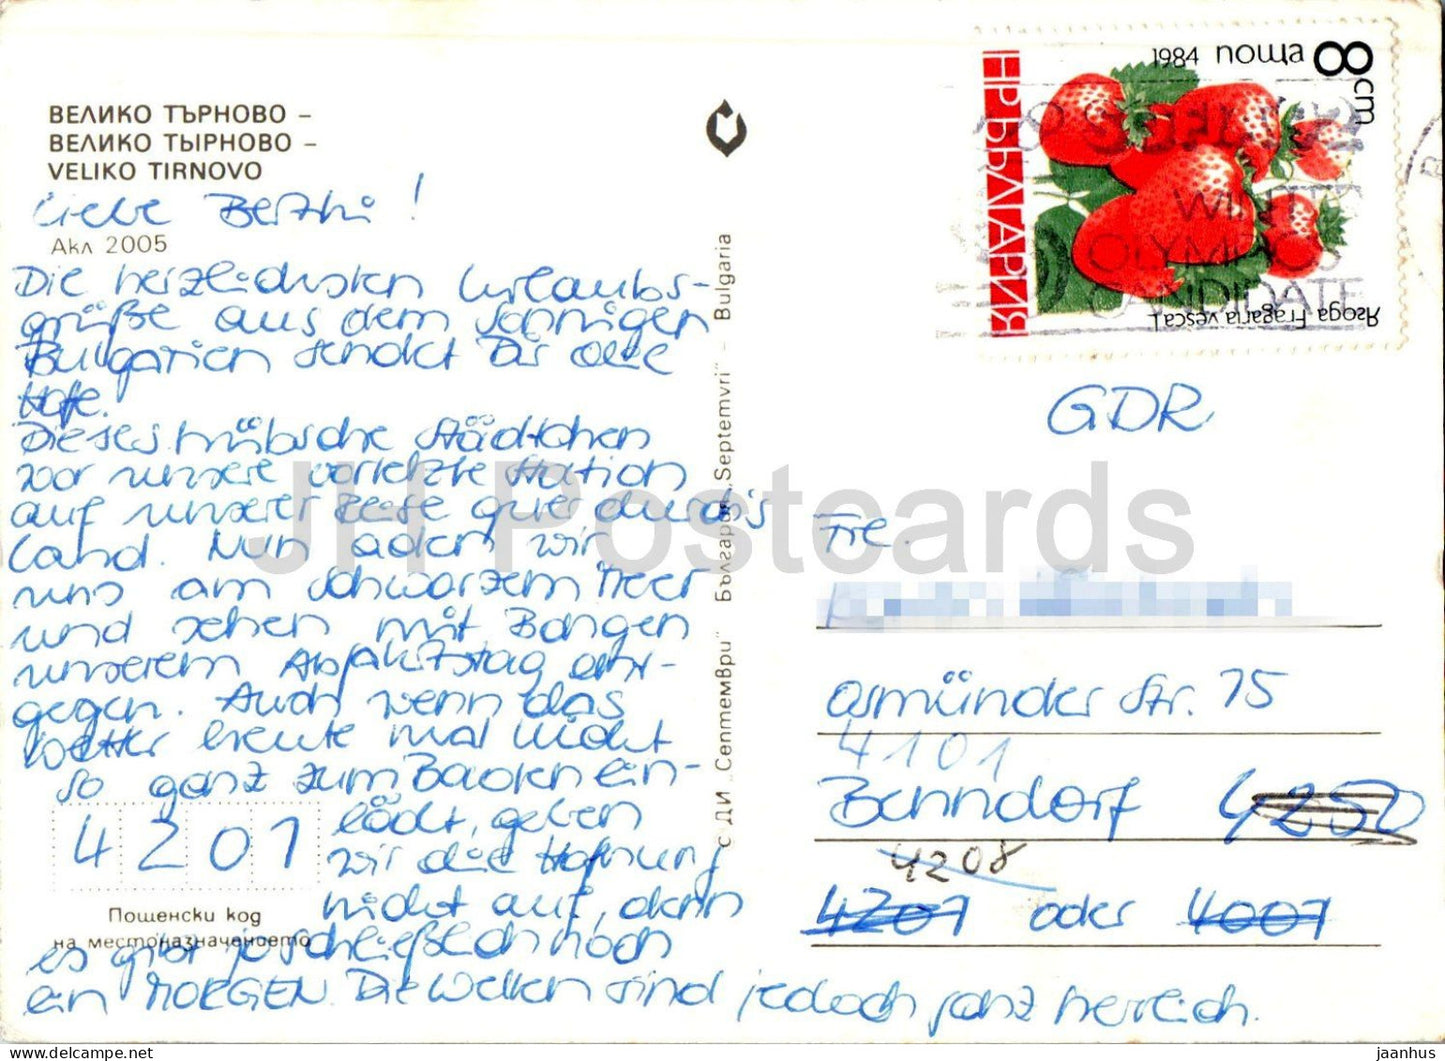 ВЕЛИКО ТЪРНОВО –
ВЕЛИКО ТЫРНОВО –
VELIKO TIRNOVO
Liebe !
Акл 2005
Die herzlichsten Urlaubs-
grüße aus dem sonnigen
Bulgarien sendet Dir
Dieses hübsche Städtchen
war unsere vorletzte Station
auf unserer Reise quer durch's
Land. Nun aalen wir
uns am schwarzem Meer
und sehen mit Bangen
unserem Abfahrtstag ent-
gegen. Auch wenn das
Wetter heute mal nicht
so ganz zum Baden ein-
lädt, geben
wir die Hoffnung
nicht auf, denn
es gibt ja schließlich noch
ein MORGEN. Die Wellen sind jedoch ganz herrlich.
4201
Пощенски код
на местоназначението
С ДИ „Септември" Български „Septemvri" – Bulgaria
НР БЪЛГАРИЯ
1984 поща 8 cm
Ягода Fragaria vesca L
WINTER
OLYMPICS
CANDIDATE
GDR
Frl.
Osmünder Str. 15
4101
Benndorf 4250
4208
4207 oder 4007
JH Postcards
jaanhus | https://www.ebay.com